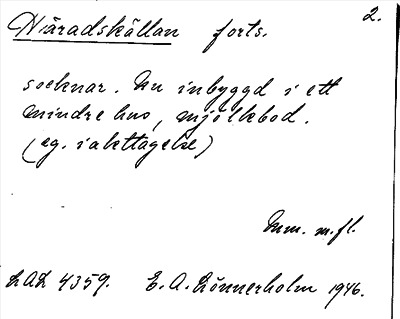 Häradskällan forts. 2.
socknar. Nu inbyggd i ett
mindre hus, mjölkbod.
(eg. iakttagelse)
Mm. m.fl.
LAL 4359. E. A. Lönnerholm 1946.